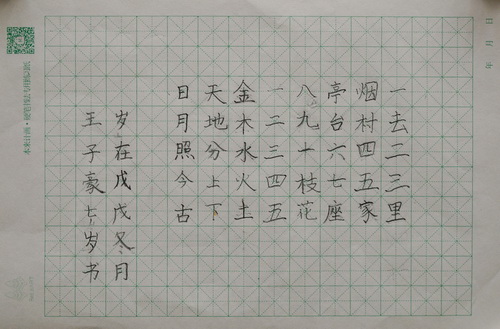 一去二三里
烟村四五家
亭台六七座
八九十枝花
一二三四五
金木水火土
天地分上下
日月照今古
岁在戊戌冬月
王子豪七岁书
日
月
年